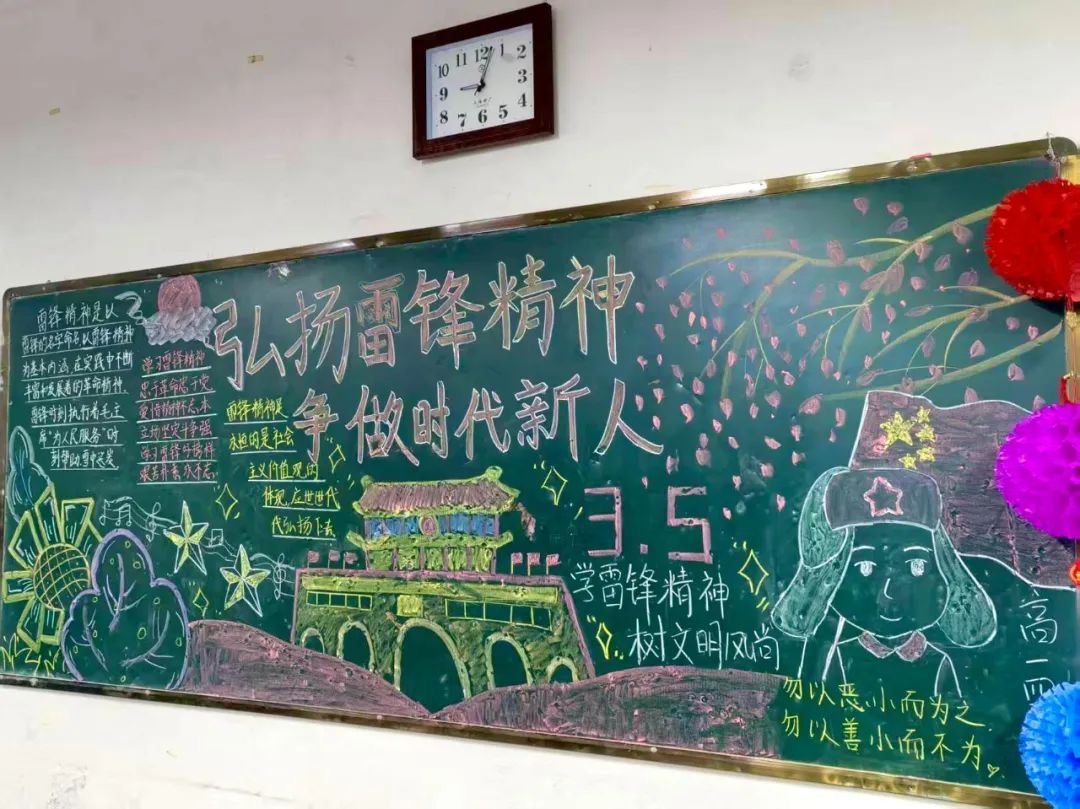 12
1
2
3
4
5
6
7
8
9
10
11
弘扬雷锋精神
争做时代新人
雷锋精神是以
雷锋的名字命名以雷锋精神
为基本内涵,在实践中不断
丰富和发展着的革命精神,
雷锋时刻执行着毛主
席"为人民服务"的
学习雷锋精神
忠于革命忠于党
爱憎分明不忘本
立场坚定斗争强
雷锋精神是
永恒的是社会
主义价值观的
体现,在世世代
代弘扬下去
3.5
学雷锋精神
树文明风尚
勿以恶小而为之
勿以善小而不为。
高一